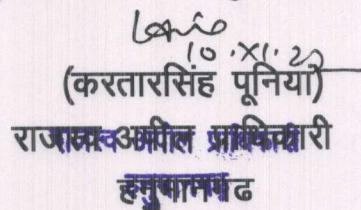 10.XI.20
(करतारसिंह पूनिया)
राजस्व अपील प्राधिकारी
हनुमानगढ